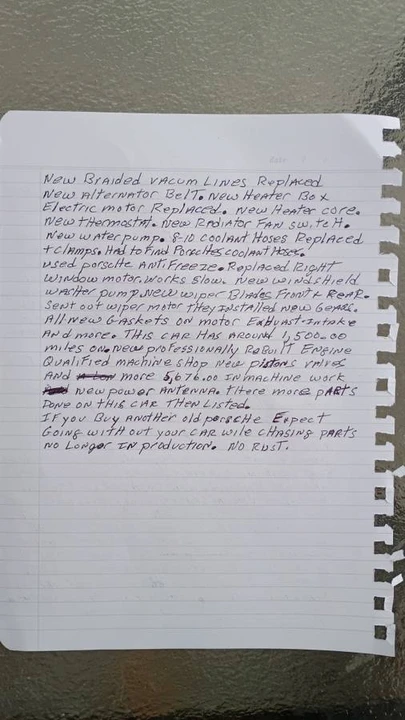 New Braided vacum Lines Replaced
New Alternator Belt. New Heater Box
Electric motor Replaced. New Heater core.
New thermostat. New Radiator Fan switch.
New water pump. 8-10 coolant Hoses Replaced
+ clamps. Had to Find Porsches coolant Hoses.
used porsche AntiFreeze. Replaced Right
window motor. Works slow. New windshield
washer pump. New wiper Blades Front & Rear.
Sent out wiper motor they installed new Gears.
All new Gaskets on motor Exhuast-Intake
And more. This car Has Around 1,500.00
miles on. New professionally Rebuilt Engine
Qualified machine shop New pistons valves
And more 5,676.00 In machine work
New power Antenna. There more parts
Done on this car Then Listed.
If you Buy another old porsche Expect
Going with out your car wile chasing parts
No Longer In production. No Rust.